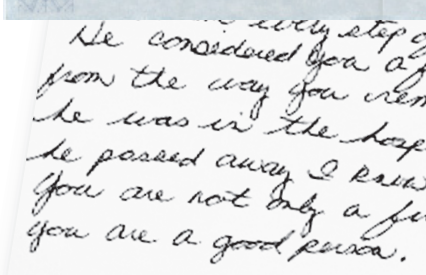 in every step
He considered you a
from the way you
he was in the
he passed away I know
You are not only a
you are a good person.